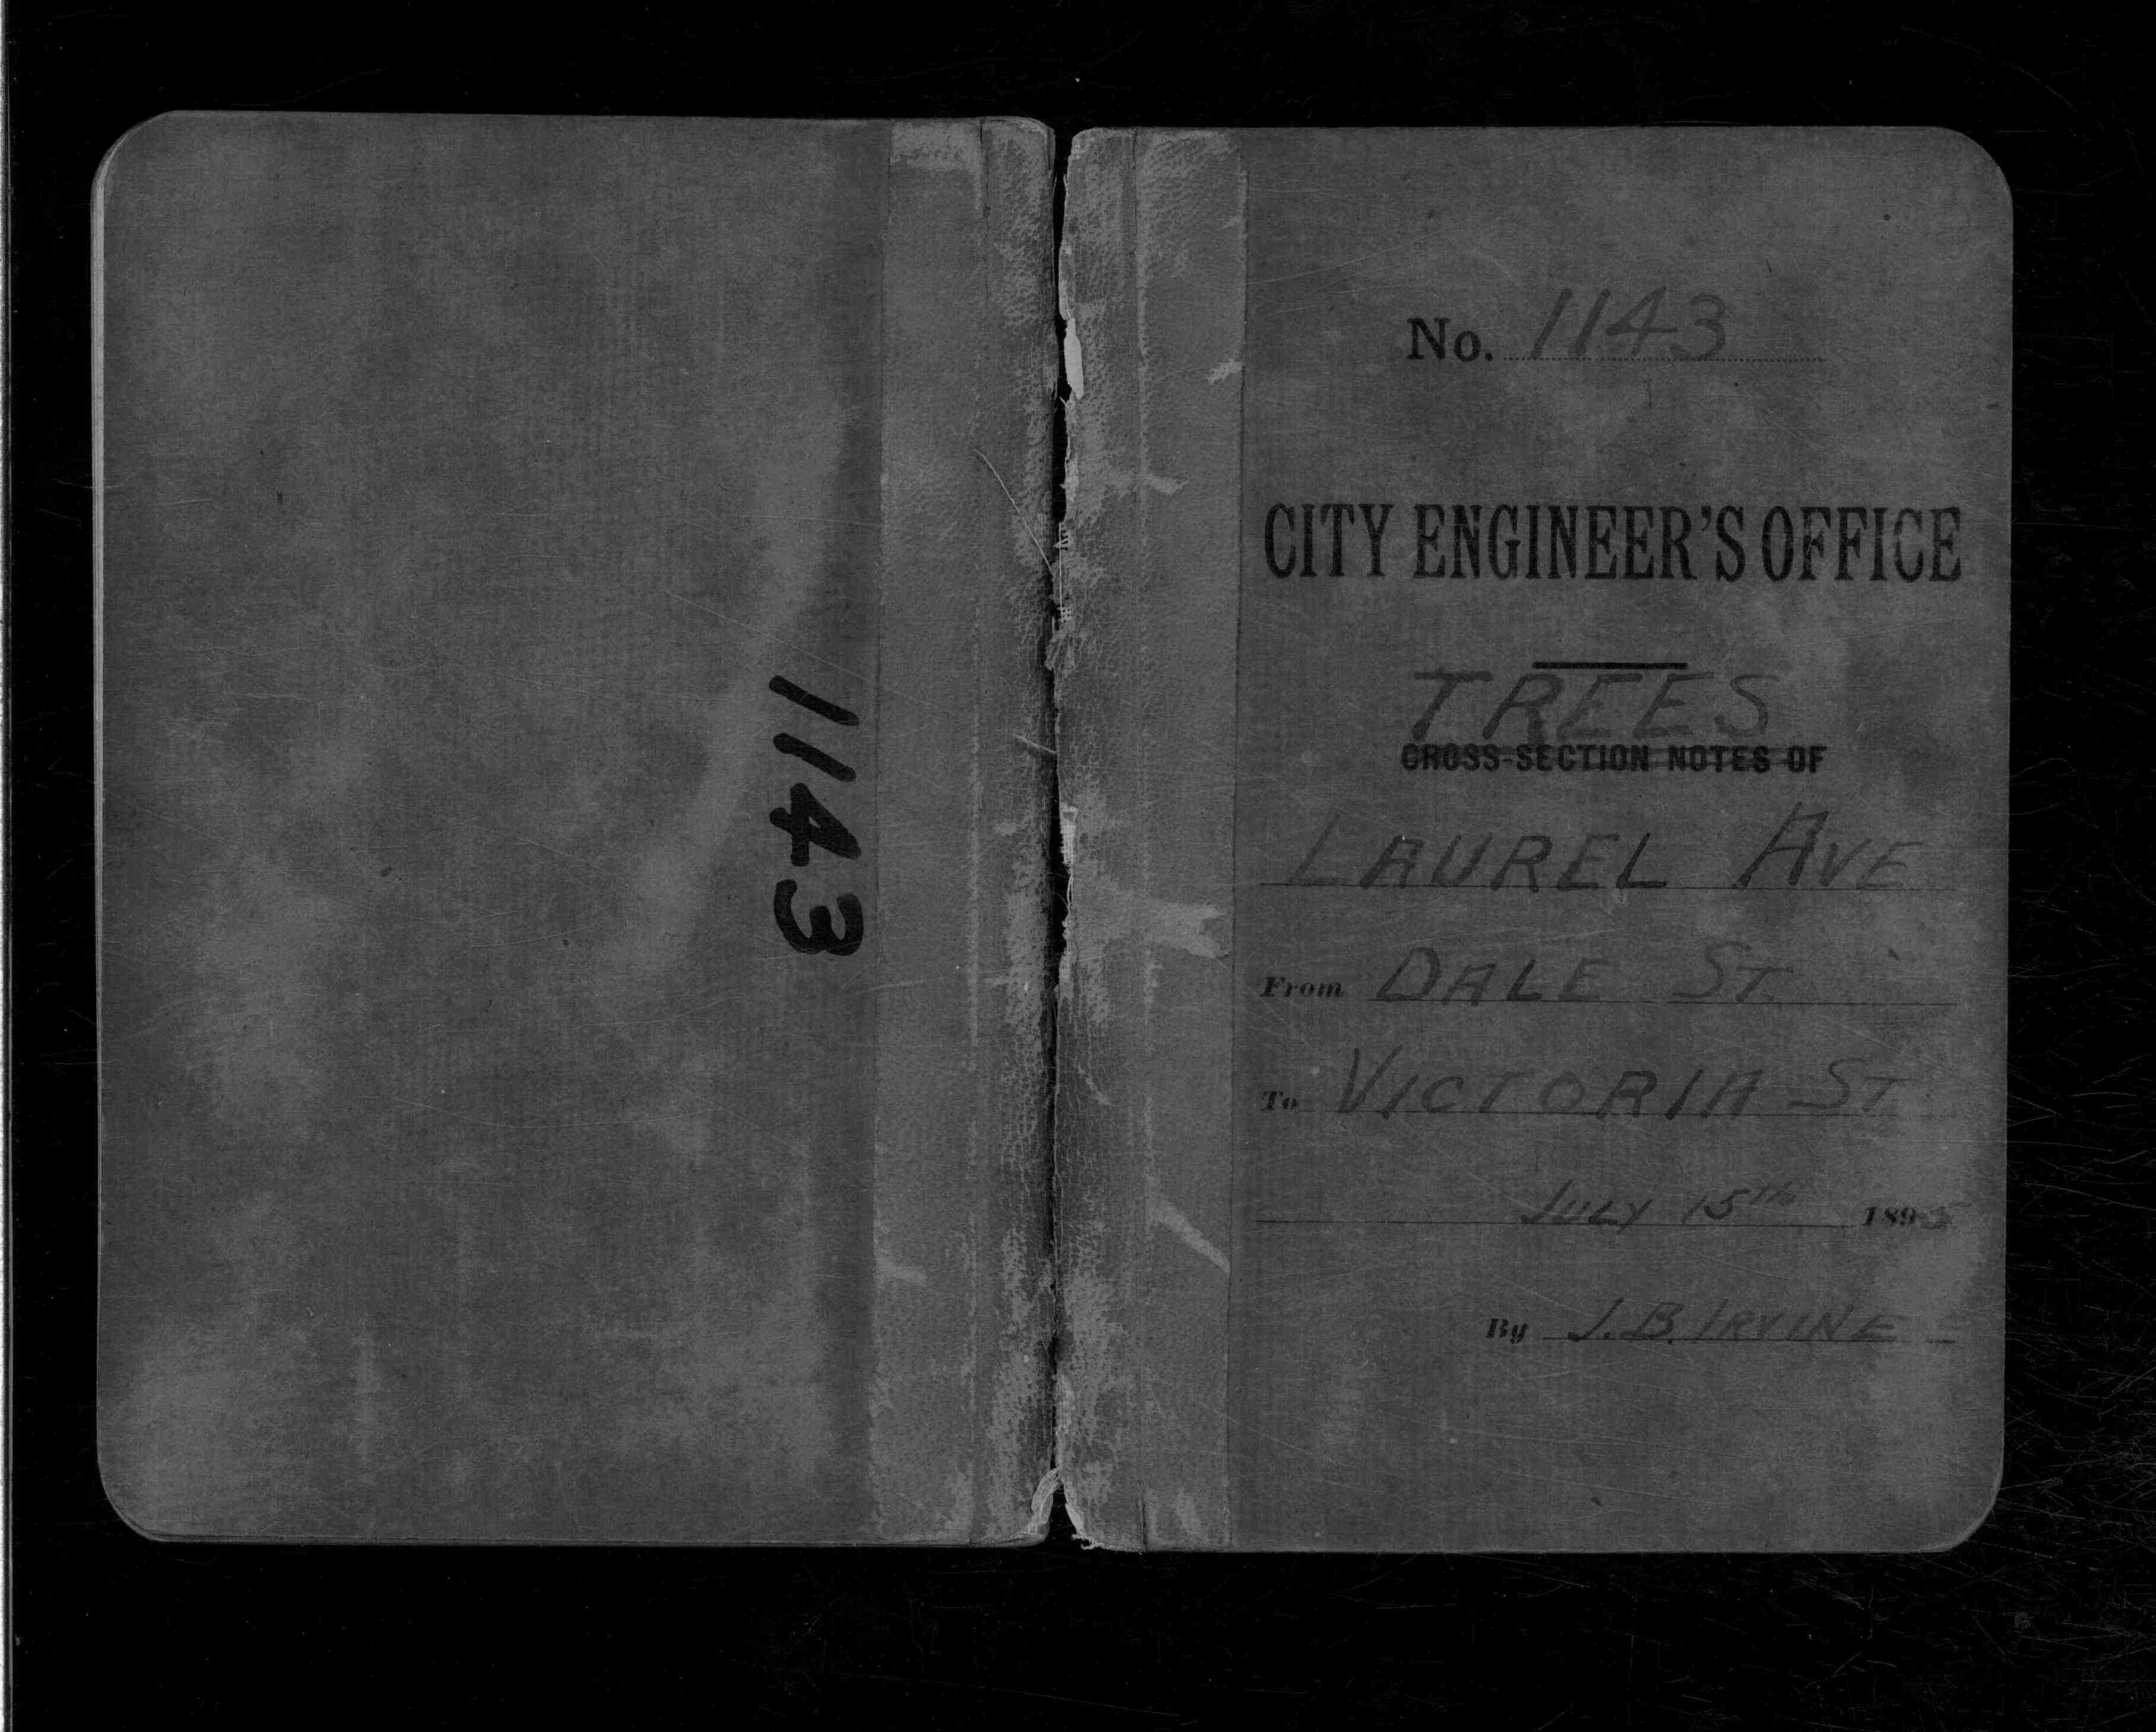 1143
No. 1143
CITY ENGINEER'S OFFICE
TREES
CROSS-SECTION NOTES OF
LAUREL AVE
From DALE ST.
To VICTORIA ST
JULY 15TH 1895
By J. B. IRVINE